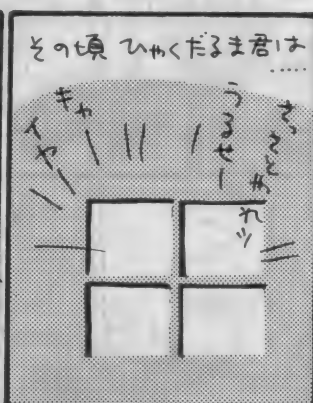 その頃 ひゃくだるま君は
……
さっさと
うるせー
キャ
イヤ